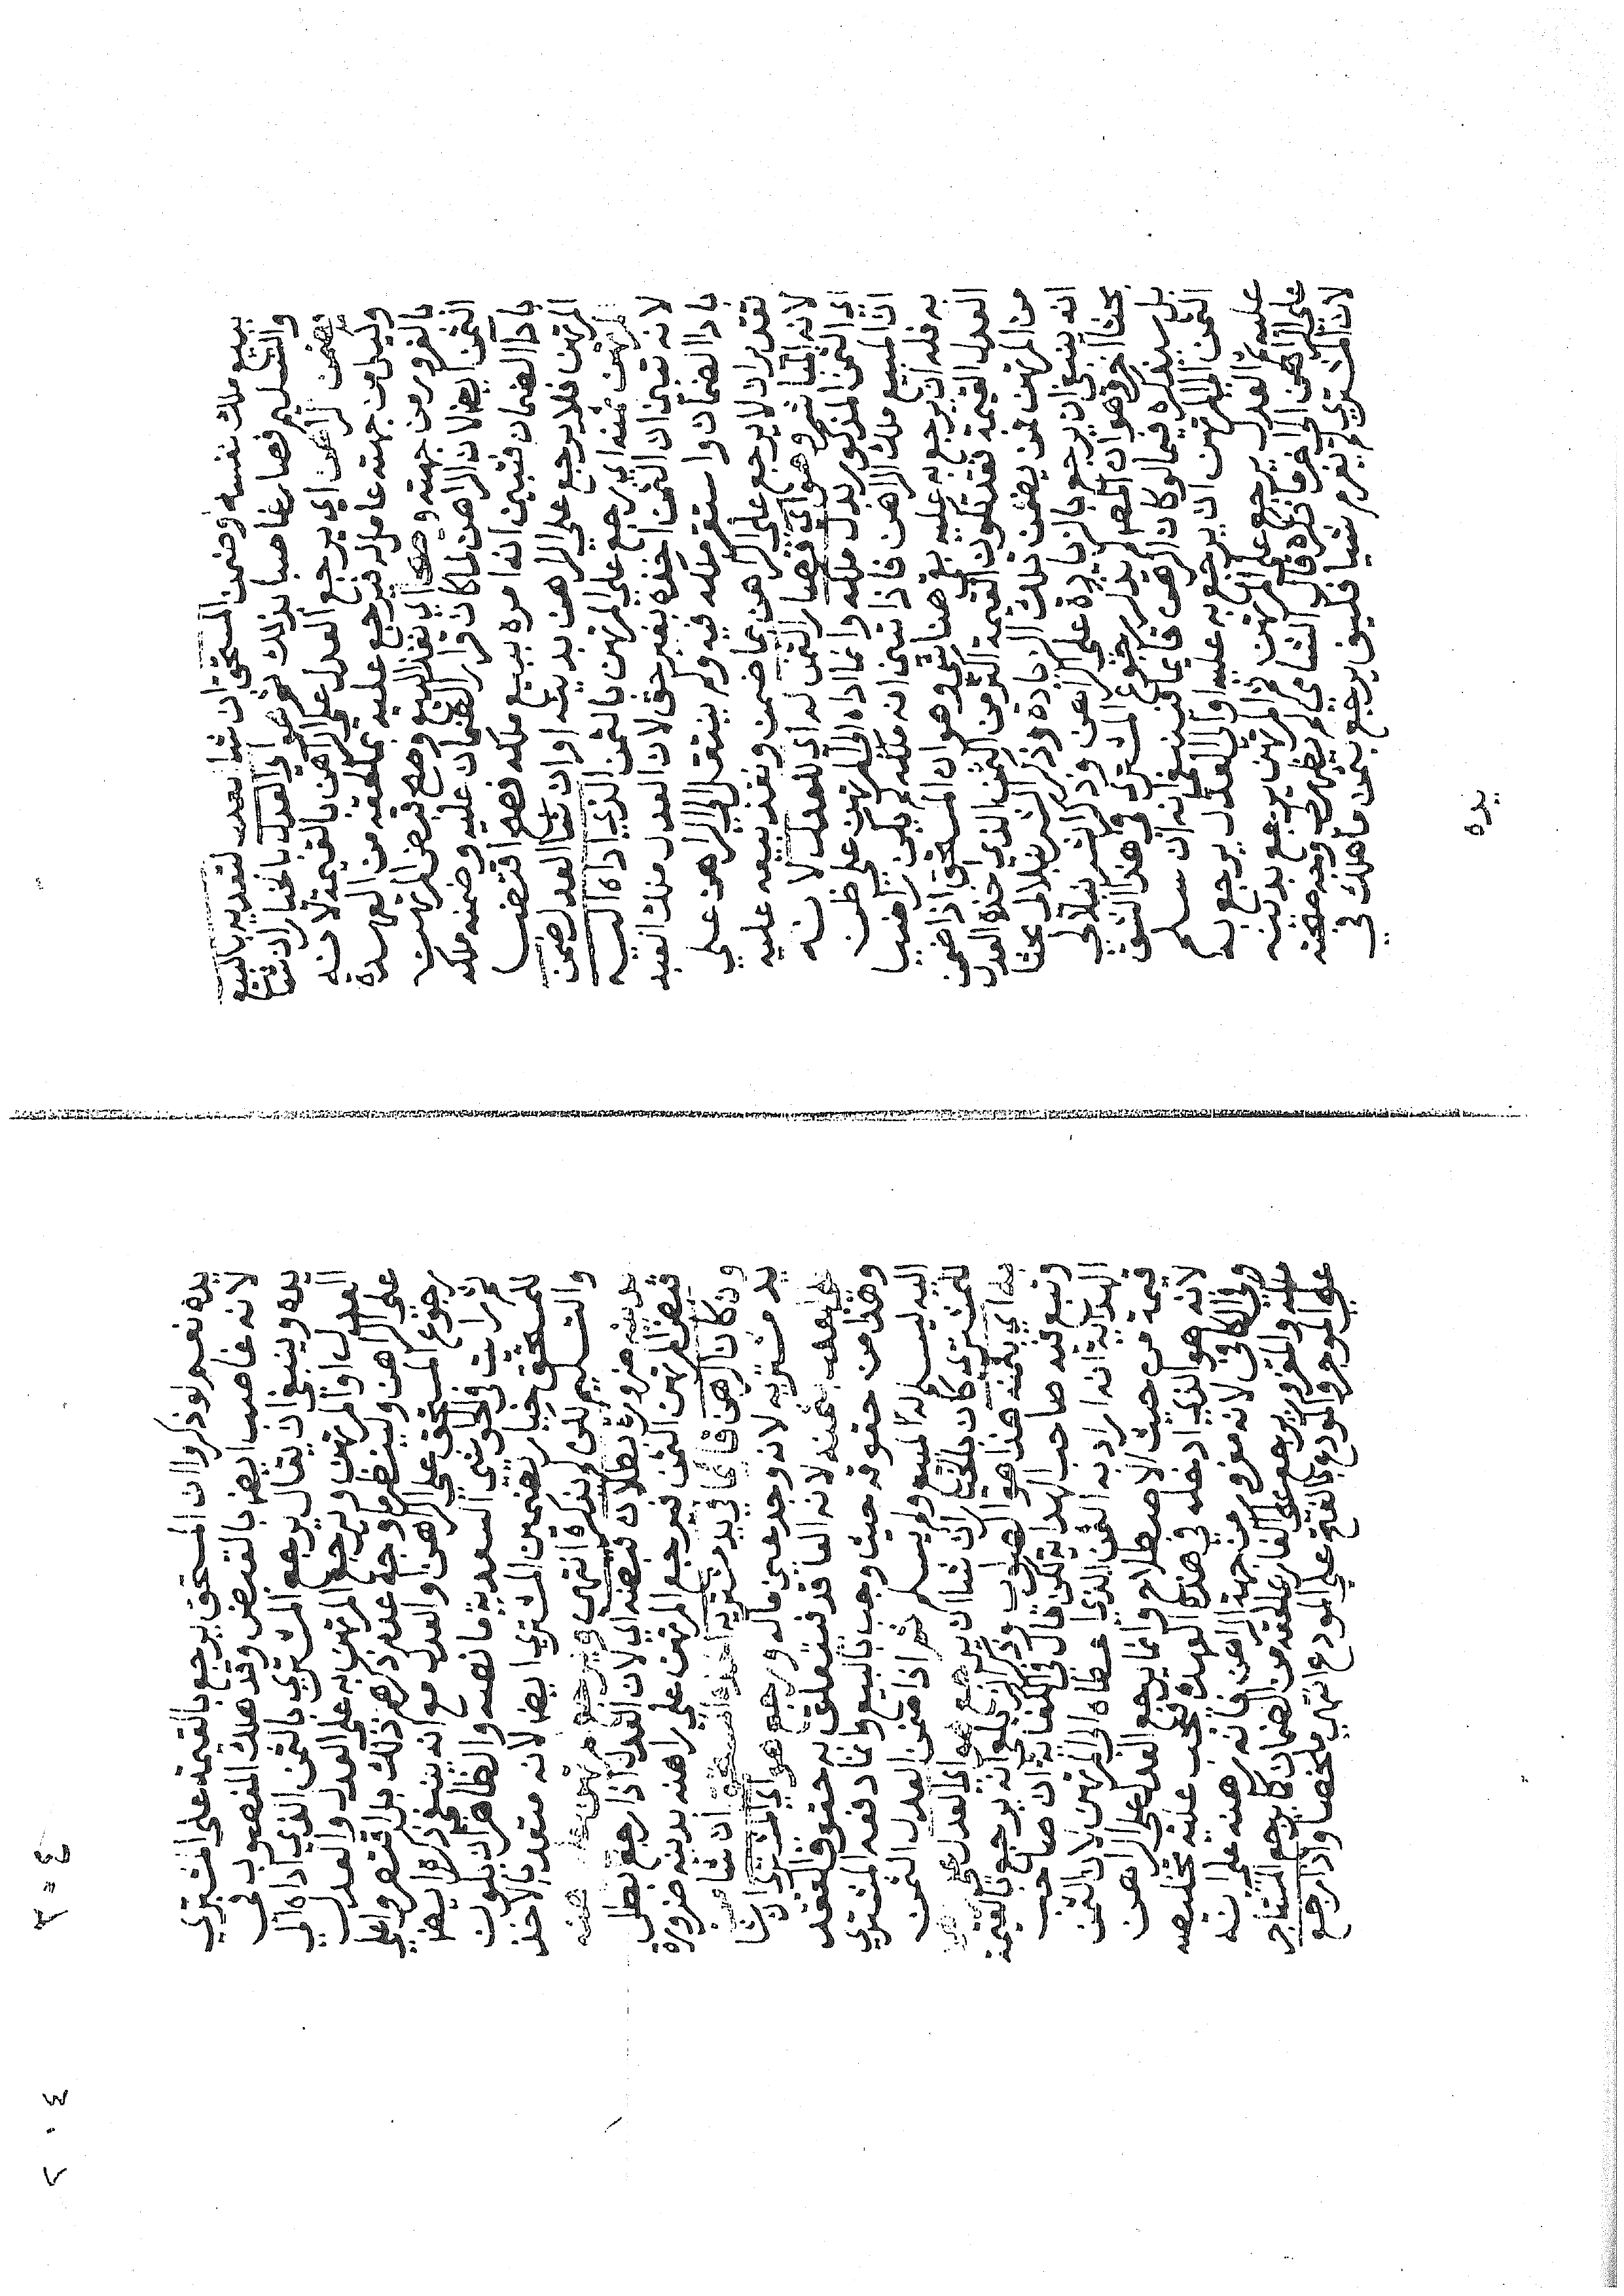 ببيع ملك نفسه وضمن المستحق ان شا العدل لتعديه بالبيع
والتسليم فصار غاصبا بذلك ثم هو اي العدل بالخيار ان شا
يضمن الراهن اي يرجع العدل على الراهن بالقيمة لانه
وكيل من جهته عامل له فيرجع عليه بما لحقه من العهدة
بالغرور من جهته وصحا اي نفذ البيع وصح قبض المرتهن
الثمن ايضا لان الراهن لما كان قرار الضمان عليه وضمنه ملكه
بادا الضمان فتبين انه امره ببيع ملكه فصح اقتضا
المرتهن فلا يرجع على الراهن بدينه او ان شا العدل ضمن
المرتهن ثمنه اي يرجع على المرتهن بالثمن الذي اداه اليه
لانه تبين ان الثمن اخذه بغير حق لان العدل ملك العبد
بادا الضمان واستقر ملكه فيه ولم ينتقل الى الراهن على
تقدير ان لا يرجع على الراهن بما ضمن ونفذ بيعه عليه
لانه المباشر وهو اي فصار الثمن له اي للعدل لانه
اي الثمن المذكور بدل ملكه وانما اداه الى المرتهن على ظن
ان المبيع ملك الراهن فاذا تبين انه ملكه لم يكن راضيا
به فله ان يرجع به عليه بقي هنا شي وهو ان المستحق اذا ضمن
العدل القيمة فقد تكون القيمة اكثر من الثمن الذي اخذه العدل
من المرتهن فمن يضمن تلك الزيادة وذكر الشرنبلالي بحثا
انه ينبغي ان يرجع بالزيادة على الراهن وذكر الشرنبلالي
بحثا اخر وهو ان المص لم يذكر رجوع المشتري في هذا الشق
بل سيذكره فيما لو كان الرهن قايما فينبغي انه ان سلم
الثمن الى المرتهن ان يرجع به عليه او الى العدل يرجع به
عليه ثم العدل يرجع على المرتهن ثم المرتهن يرجع بدينه
على الراهن الى اخر ما ذكره قال الشامي لم يظهر لي وجه صحته
لان المشتري لم يغرم شيا فكيف يرجع بثمن ما هلك في
يده
يده نعم لو ذكروا ان المستحق يرجع بالقيمة على المشتري
لانه غاصب ايضا بالقبض وقد هلك المغصوب في
يده وينبغي ان يقال يرجع المشتري بالثمن الذي اداه الى
العدل او المرتهن ويرجع المرتهن به على العدل والعدل
على الراهن ولينظر ما وجه عدم ذكرهم ذلك بل اقتصروا على
رجوع المستحق على الراهن والعدل مع انه ينبغي ذكره ايضا
ثم رايت في حواشي السعدية ما نصه والظاهر ان يكون
للمستحق خيار تضمين المشتري ايضا لانه متعد بالاخذ
والتسليم لكن لم نذكره انتهى ويرجع مرتهن
بدينه ضرورة بطلان قبضه اي لان العدل اذا رجع بطل
قبض المرتهن الثمن فيرجع المرتهن على راهنه بدينه ضرورة
وان كان الرهن قايما في يد مشتريه اخذه المستحق ان شا من
يد مشتريه لانه وجد عين ماله ورجع هو اي المشتري ان شا
على العدل بثمنه لانه العاقد فتتعلق به حقوق العقد
وهذا من حقوقه حيث وجب بالبيع وانما دفعه المشتري
اليه ليسلم له المبيع ولم يسلم ثم اذا ضمن العدل الثمن
للمشتري كان بالخيار ان شا يرجع هو اي العدل على
به اي بثمنه هذا هو الصواب وذكر الزيلعي انه يرجع بالقيمة
وتبع فيه صاحب الهداية لكن قال في الكفاية ان صاحب
الهداية انه اراد به الثمن الذي اعطاه الى المرتهن لان الثمن
قيمة من حيث الاصطلاح وانما يرجع العدل على الراهن
لانه هو الذي ادخله في هذه العهدة فيجب عليه تخليصه
وفي الكافي لانه مغرور من جهة الراهن فانه رهنه على انه
ملكه والمغرور يرجع على الغار بما لحقه من الضمان كما يرجع المستاجر
على الموجر والمودع بالفتح على المودع انتهى ملخصا واذا رجع